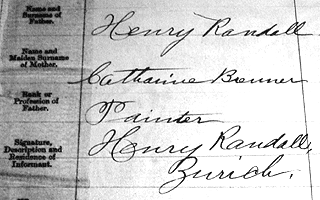 Name and
Surname of
Father.
Henry Randall
Name and
Maiden Surname
of Mother.
Catharine Brenner
Rank or
Profession of
Father.
Painter
Signature,
Description and
Residence of
Informant.
Henry Randall,
Zurich.